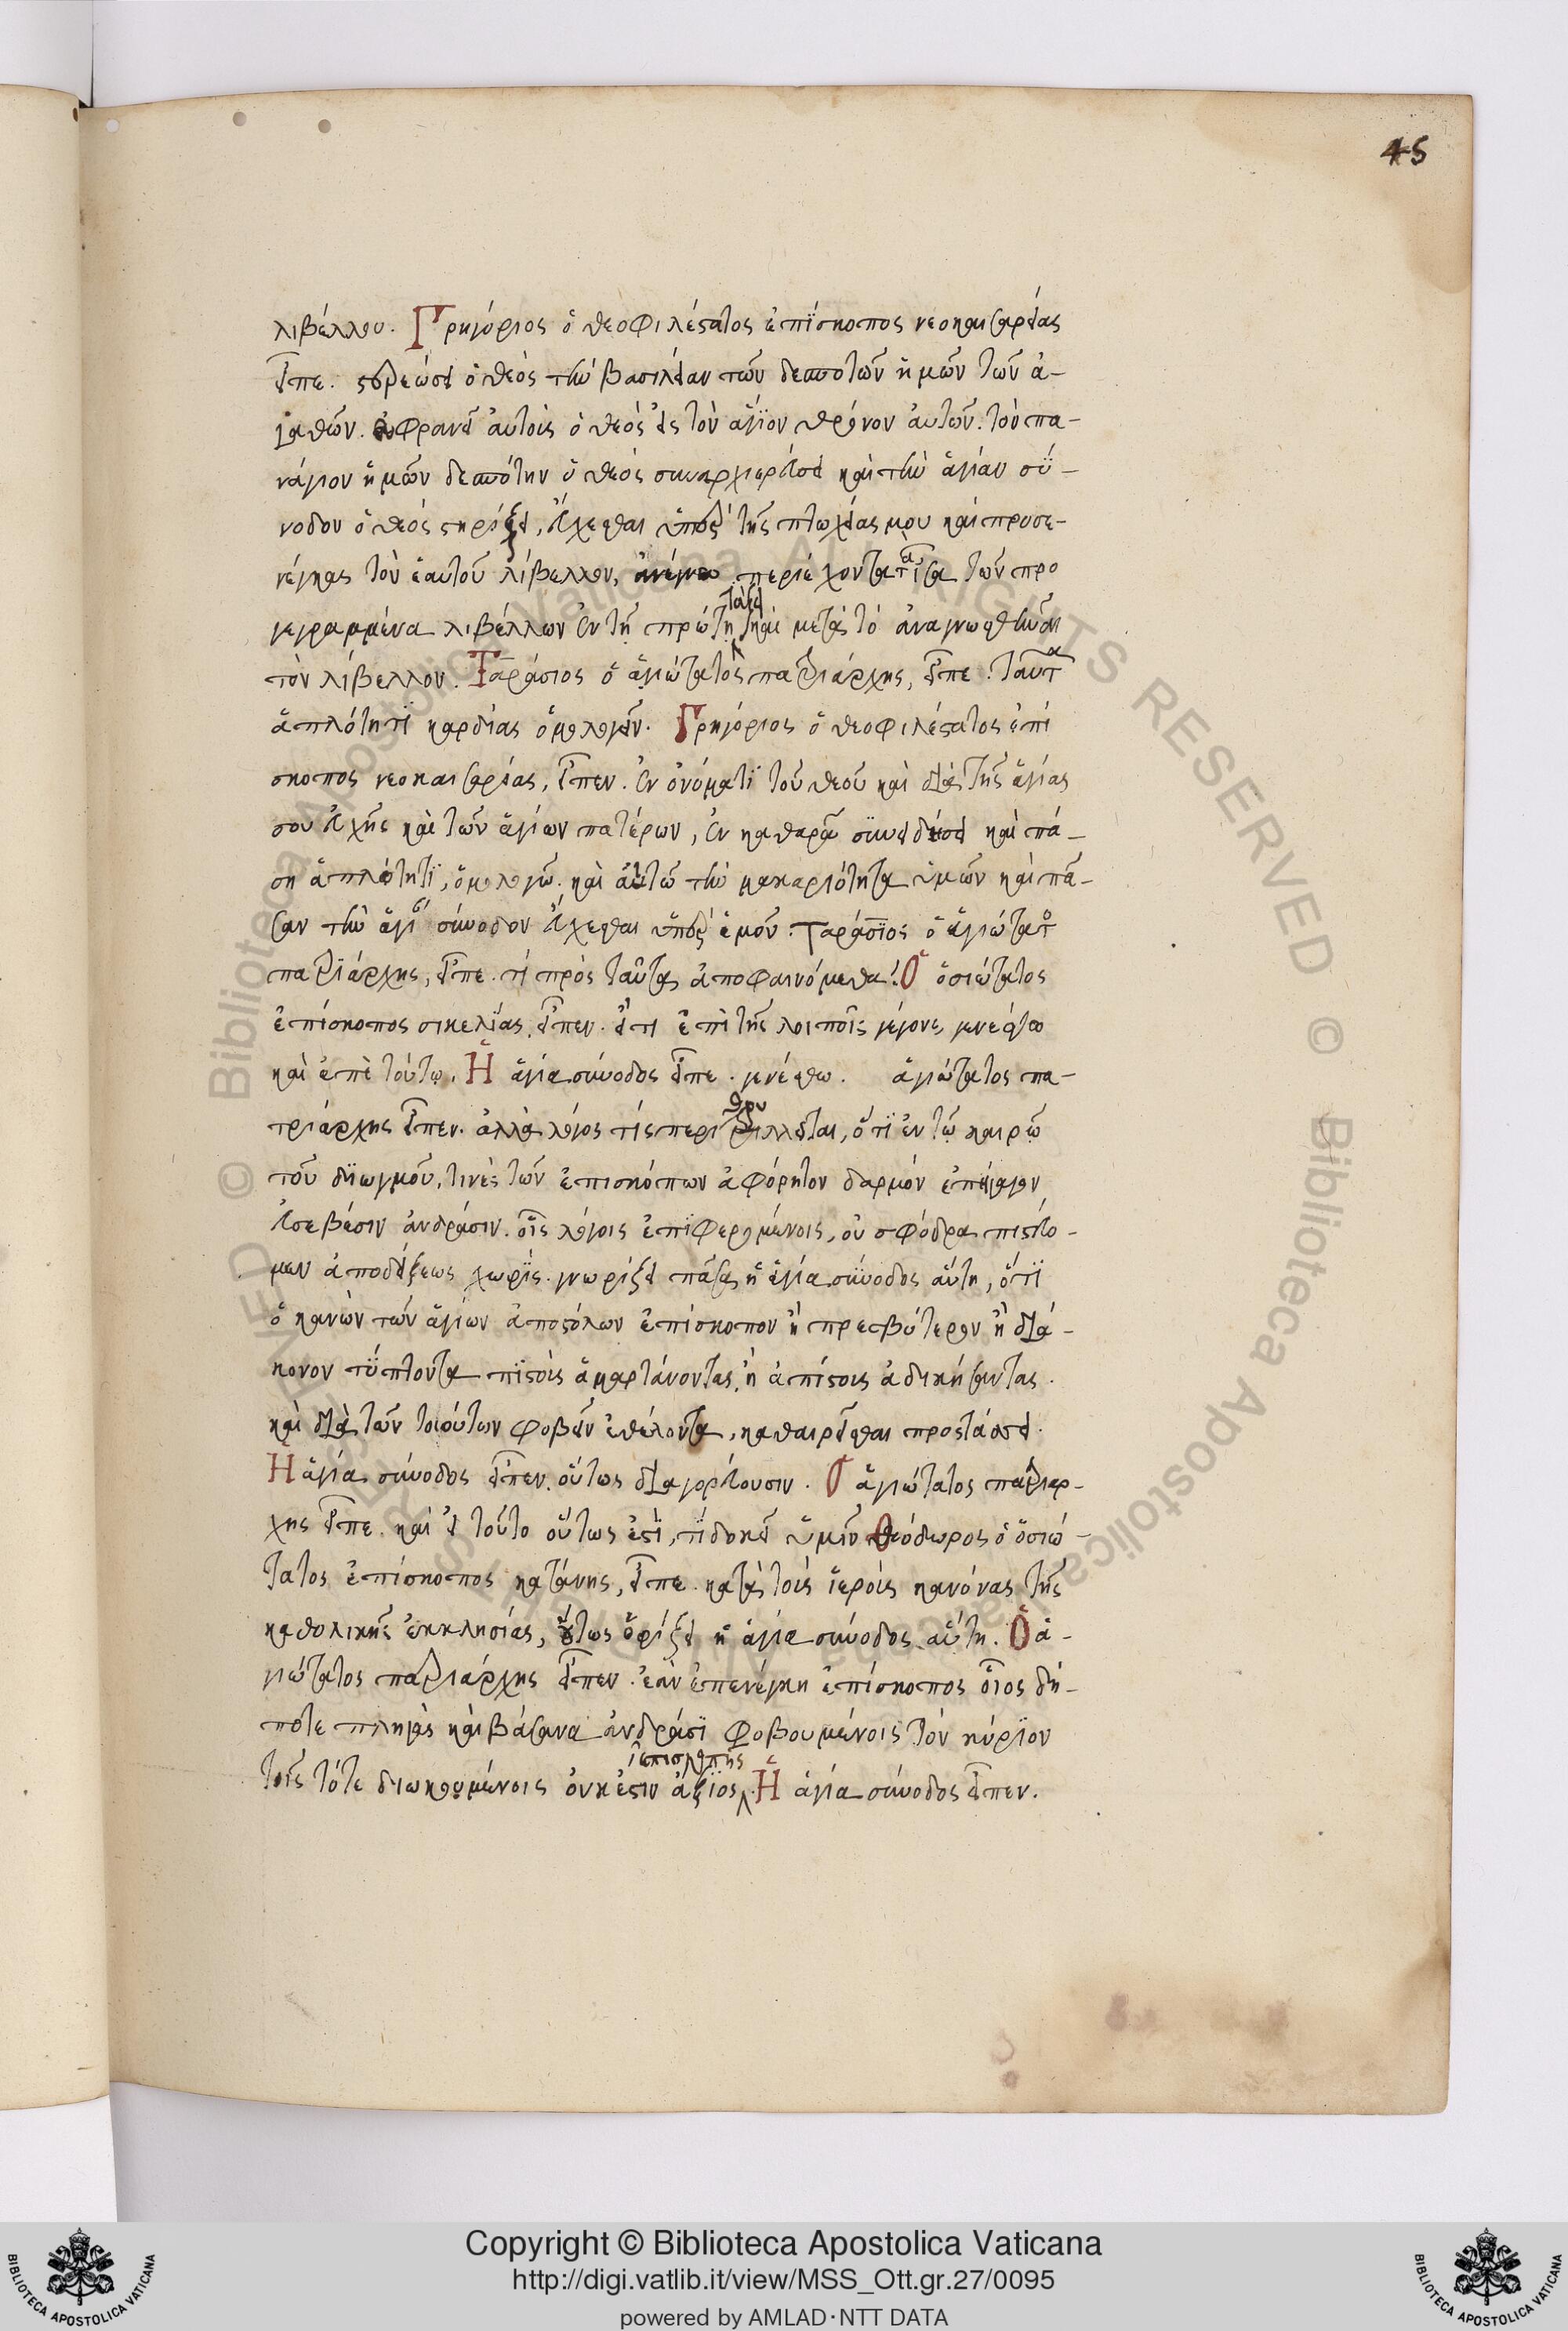 45
λιβέλλου. Γρηγόριος ὁ θεοφιλέστατος ἐπίσκοπος νεοκαισαρείας
εἶπε. στερεώσει ὁ θεὸς τὴν βασιλείαν τῶν δεσποτῶν ἡμῶν τῶν ἀ-
γαθῶν. εὐφρανεῖ αὐτοὺς ὁ θεὸς εἰς τὸν ἅγιον θρόνον αὐτῶν. τὸν πα-
νάγιον ἡμῶν δεσπότην ὁ θεὸς συναρχιερεύσει καὶ τὴν ἁγίαν σύ-
νοδον ὁ θεὸς στηρίξει, εὔχεσθαι ὑπὲρ τῆς πτωχείας μου καὶ προσε-
νέγκας τὸν ἑαυτοῦ λίβελλον, ἀνέγνω περιέχοντα τὰ ἴσα τῶν προ
γεγραμμένα λιβέλλων ἐν τῇ πρώτῃ τάξει καὶ μετὰ τὸ ἀναγνωσθῆναι
τὸν λίβελλον. Ταράσιος ὁ ἁγιώτατος πατριάρχης, εἶπε. ταῦτα
ἁπλότητι καρδίας ὁμολογεῖν. Γρηγόριος ὁ θεοφιλέστατος ἐπί
σκοπος νεοκαισαρείας, εἶπεν. ἐν ὀνόματι τοῦ θεοῦ καὶ διὰ τῆς ἁγίας
σου εὐχῆς καὶ τῶν ἁγίων πατέρων, ἐν καθαρᾷ συνειδήσει καὶ πά-
ση ἁπλότητι, ὁμολογῶ. καὶ αἰτῶ τὴν μακαριότητα ὑμῶν καὶ πᾶ-
σαν τὴν ἁγίαν σύνοδον εὔχεσθαι ὑπὲρ ἐμοῦ. Ταράσιος ὁ ἁγιώτατος
πατριάρχης, εἶπε. τί πρὸς ταῦτα ἀποφαινόμεθα; Ὁ ὁσιώτατος
ἐπίσκοπος σικελίας, εἶπεν. εἴ τι ἐπὶ τῆς λοιποῖς γέγονε, γενέσθω
καὶ ἐπὲ τούτῳ. Ἡ ἁγία σύνοδος εἶπε. γενέσθω. ἁγιώτατος πα-
τριάρχης εἶπεν. ἀλλὰ λόγος τίς περιθρυλλεῖται, ὅτι ἐν τῷ καιρῷ
τοῦ διωγμοῦ, τινὲς τῶν ἐπισκόπων ἀφόρητον δαρμὸν ἐπήγαγον
εὐσεβέσιν ἀνδράσιν. οἷς λόγοις ἐπιφερομένοις, οὐ σφόδρα πιστεύο-
μεν ἀποδείξεως χωρίς. γνωρίζει πᾶσα ἡ ἁγία σύνοδος αὕτη, ὅτι
ὁ κανὼν τῶν ἁγίων ἀποστόλων ἐπίσκοπον ἢ πρεσβύτερον ἢ διά-
κονον τύπτοντα πιστοὺς ἁμαρτάνοντας, ἢ ἀπίστους ἀδικήσαντας.
καὶ διὰ τῶν τοιούτων φοβεῖν ἐθέλοντα, καθαιρεῖσθαι προστάσσει.
Ἡ ἁγία σύνοδος εἶπεν. οὕτως διαγορεύουσιν. Ὁ ἁγιώτατος πατριάρ-
χης εἶπε. καὶ εἰ τοῦτο οὕτως ἐστί, τί δοκεῖ ὑμῖν Θεόδωρος ὁ ὁσιώ-
τατος ἐπίσκοπος κατάνης, εἶπε. κατὰ τοὺς ἱεροὺς κανόνας τῆς
καθολικῆς ἐκκλησίας, οὕτως ὁρίζει ἡ ἁγία σύνοδος αὕτη. Ὁ ἁ-
γιώτατος πατριάρχης εἶπεν. ἐὰν ἐπενέγκη ἐπίσκοπος οἷος δή-
ποτε πληγὰς καὶ βάσανα ἀνδράσι φοβουμένοις τὸν κύριον
τοῖς τότε διωκομένοις οὐκ ἔστιν ἄξιος ἐπισκοπῆς. Ἡ ἁγία σύνοδος εἶπεν.
Copyright © Biblioteca Apostolica Vaticana
http://digi.vatlib.it/view/MSS_Ott.gr.27/0095
powered by AMLAD·NTT DATA